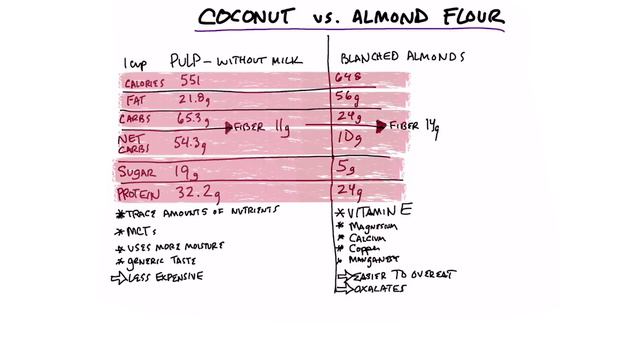 COCONUT vs. ALMOND FLOUR
1 CUP PULP - WITHOUT MILK BLANCHED ALMONDS
CALORIES 551 648
FAT 21.8g 56g
CARBS 65.3g 24g
FIBER 11g FIBER 14g
NET CARBS 54.3g 10g
SUGAR 19g 5g
PROTEIN 32.2g 24g
* TRACE AMOUNTS OF NUTRIENTS
* MCTs
* USES MORE MOISTURE
* GENERIC TASTE
⇒ LESS EXPENSIVE
* VITAMIN E
* MAGNESIUM
* CALCIUM
* COPPER
* MANGANESE
⇒ EASIER TO OVEREAT
⇒ OXALATES